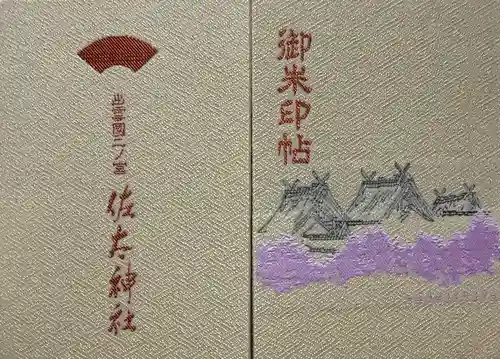 御朱印帖
出雲國二ノ宮
佐太神社